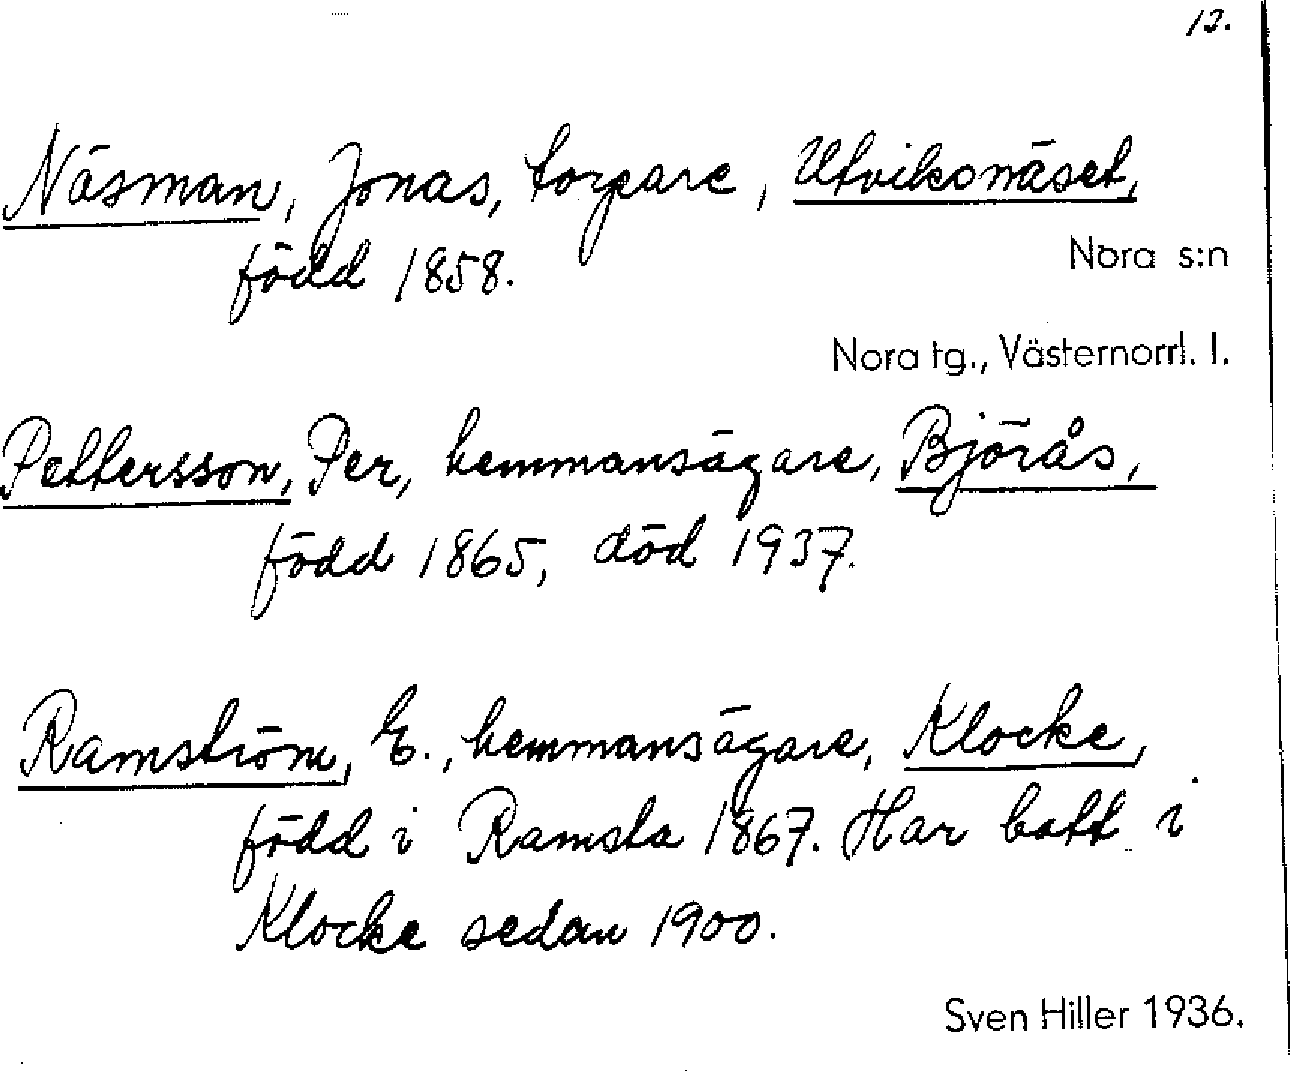 12.
Näsman, Jonas, torpare, Utviksnäset,
född 1858.
Nora s:n
Nora tg., Västernorrl. l.
Pettersson, Per, hemmansägare, Björås,
född 1865, död 1937.
Ramström, E., hemmansägare, Klocke,
född i Ramsta 1867. Har bott i
Klocke sedan 1900.
Sven Hiller 1936.